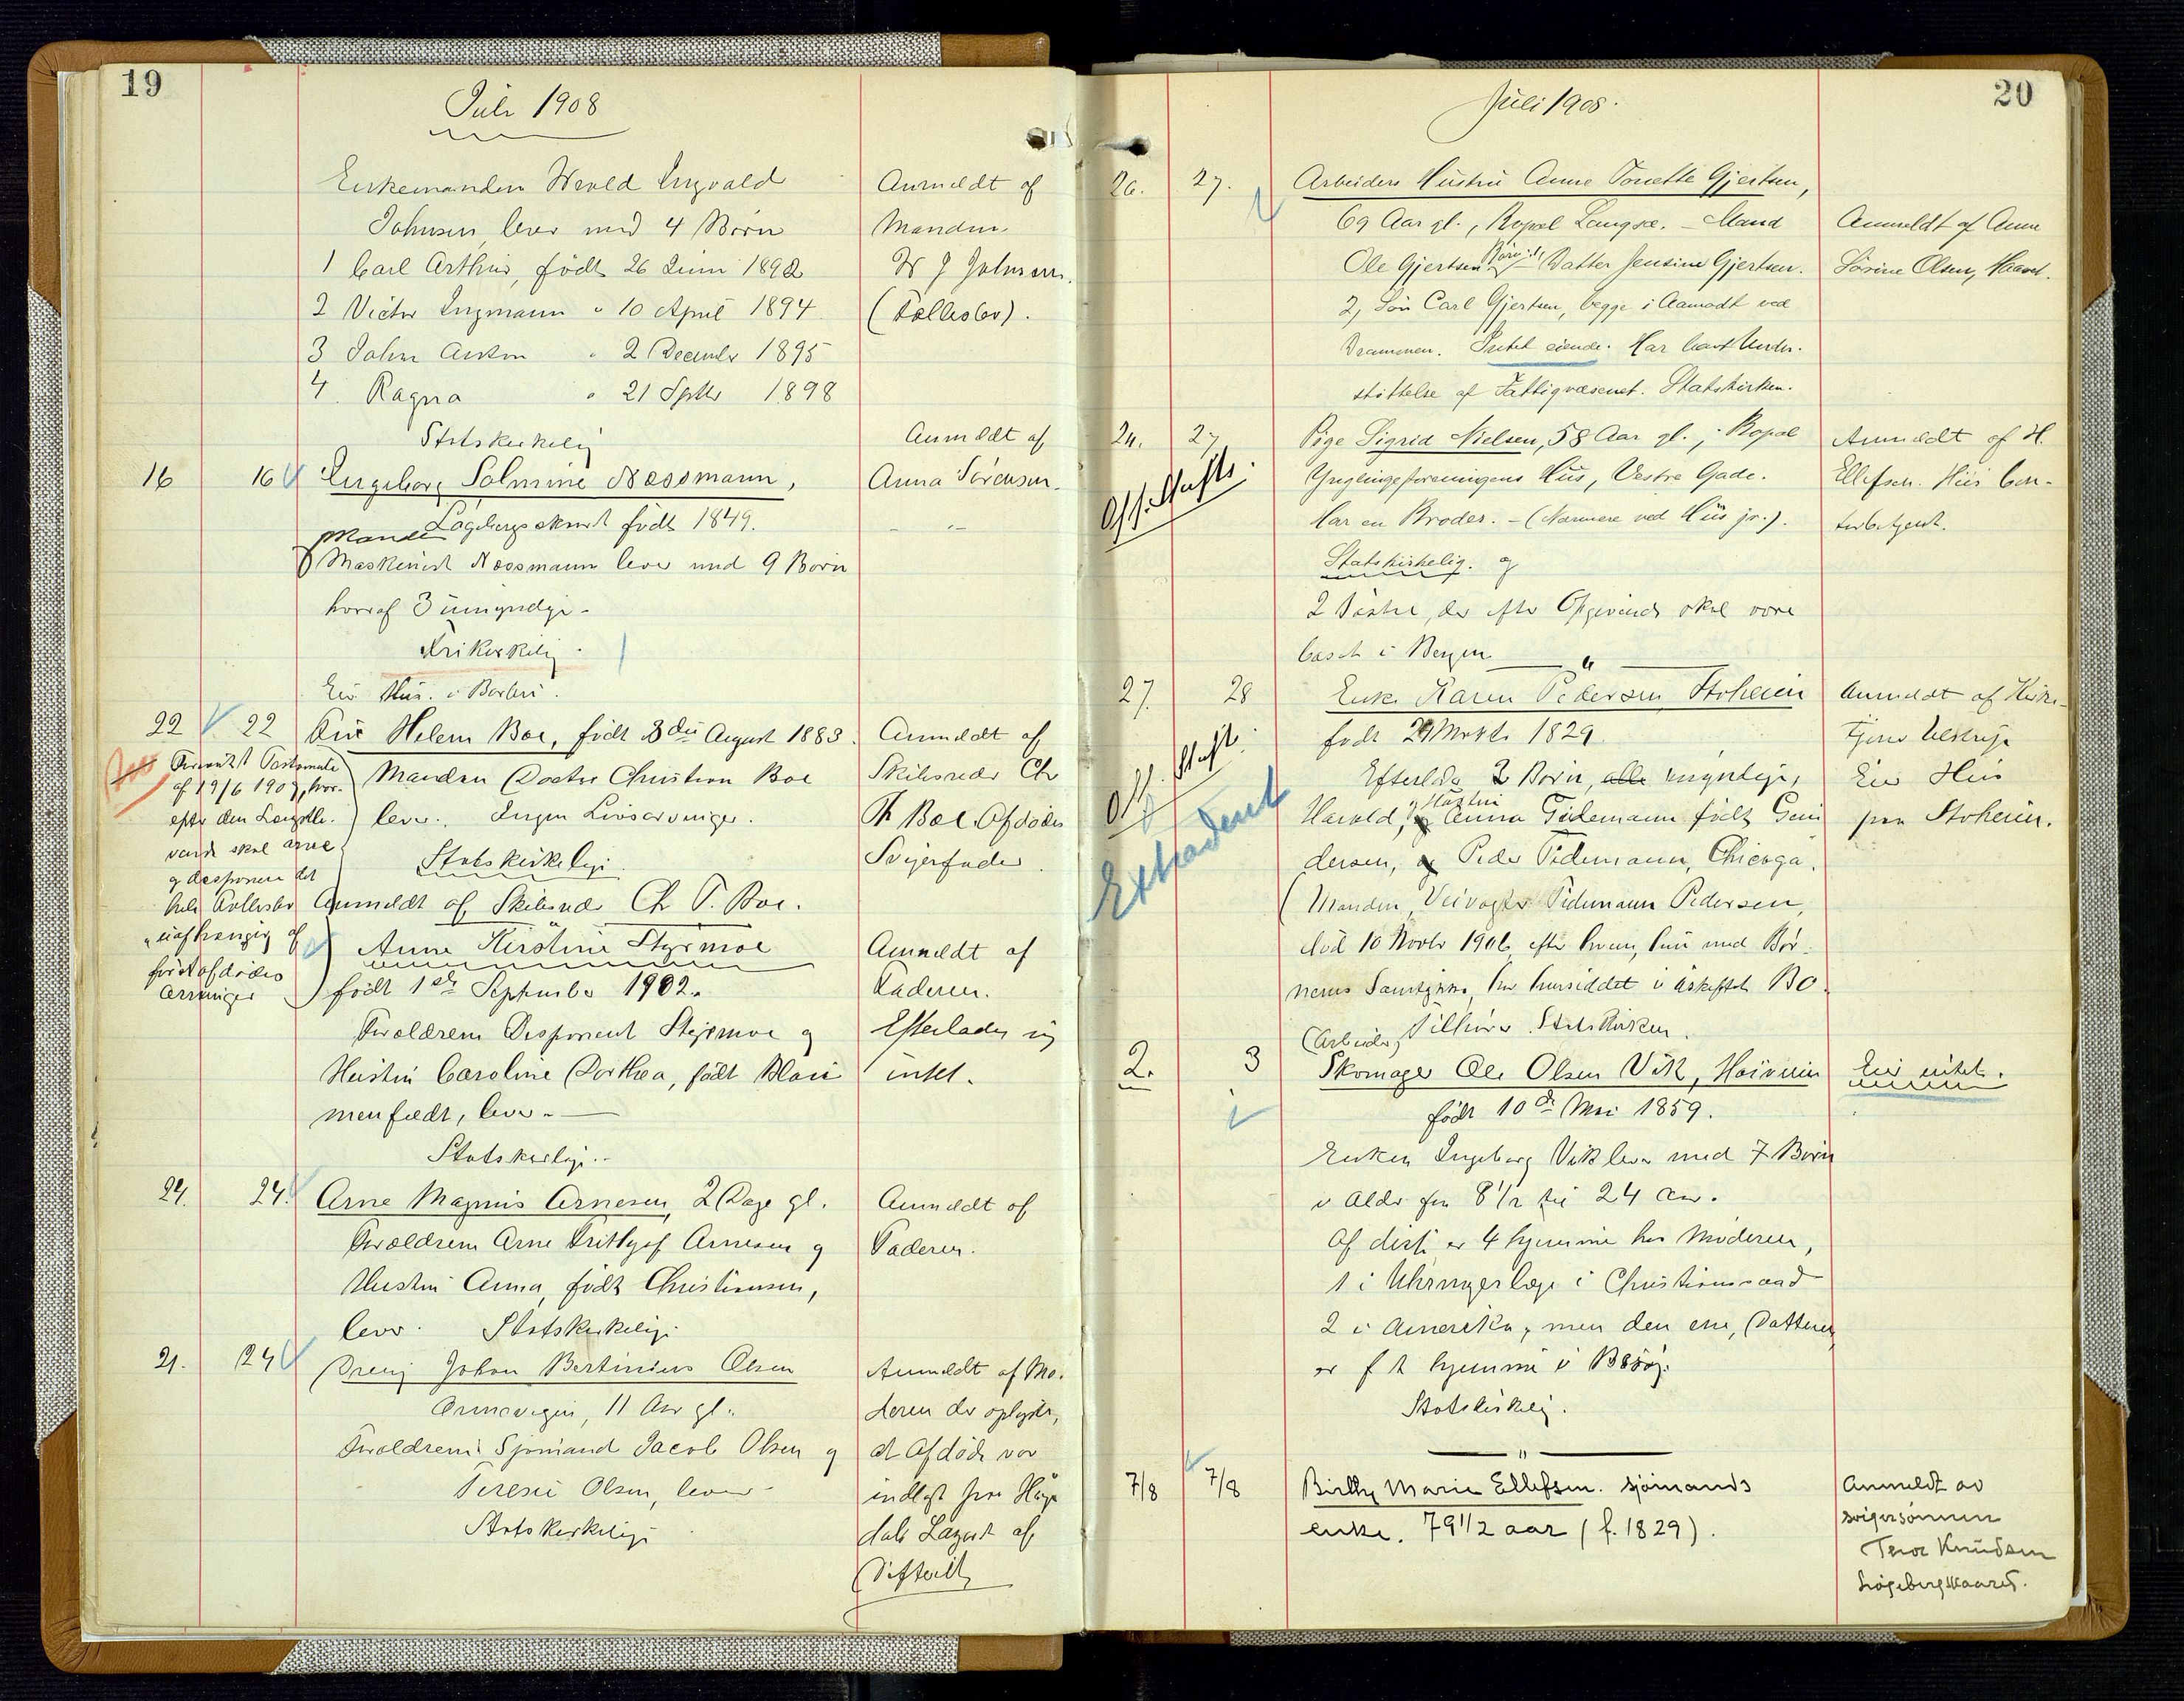 19
Juli 1908
Enkemanden Wrold Ingvald
Johnsen, lever med 4 Børn
1 Carl Arthur, født 26 Juni 1892
2 Victor Ingmann " 10 April 1894
3 John Anton " 2 December 1895
4. Ragna " 21 Septbr 1898
Statskirkelig
Anmeldt af
Manden
W J Johnsen.
(Fællesbo).
16 16 Ingeborg Solmine Nossmann,
Løgebergskaret født 1849.
Manden
Maskinist Nossmann lever med 9 Børn
hvoraf 3 umyndige.
Frikirkelig.
Eier Hus i Barbu.
Anmeldt af
Anna Sørensen.
22 22 Fru Helene Boe, født 3die August 1883.
Manden Doctor Christian Boe
lever. Ingen Livsarvinger.
Statskirkelig.
Anmeldt af Skibsreder Ch T. Boe.
Anmeldt af
Skibsreder Ch
Th Boe. Afdødes
Svigerfader
Testamente
af 19/6 1907, hvor-
efter den Længstle-
vende skal arve
og desponere det
hele Fællesbo
uafhængig af
førstafdødes
arvinger
Anne Kirstine Styrmoe
født 1ste September 1902.
Forældrene Disponent Styrmoe og
Hustru Caroline Dorthea, født Blau
menfeldt, lever.
Statskirkelig.
Anmeldt af
Faderen.
Efterlader sig
intet.
24. 24. Arne Magnus Arnesen, 2 Dage gl.
Forældrene Arne Frithjof Arnesen og
Hustru Anna, født Christiansen,
lever. Statskirkelig.
Anmeldt af
Faderen.
21. 24 Dreng Johan Bertinius Olsen
Arnevigen, 11 Aar gl.
Forældrene Sjømand Jacob Olsen og
Terese Olsen, lever
Statskirkelig
Anmeldt af Mo-
deren der oplyste,
at Afdøde var
indlagt paa Høge
dals Lazaret af
Difterit
20
Juli 1908.
26. 27. Arbeiders Hustru Anne Tonette Gjertsen,
69 Aar gl., Bopæl Langsæ. – Mand
Ole Gjertsen Børn: 1, Datter Jensine Gjertsen.
2, Søn Carl Gjertsen, begge i Aamodt ved
Drammen. Intet eiende. Har havt Under-
støttelse af Fattigvæsenet. Statskirken.
Anmeldt af Anne
Sørine Olsen, Haavet.
24. 27 Pige Sigrid Nielsen, 58 Aar gl., Bopæl
Ynglingeforeningens Hus, Vestre Gade.
Har en Broder. – (Nærmere ved Hüs jr.).
Statskirkelig. og
2 Søstre, der efter Opgivende skal være
bosat i Bergen
Off. Skifte.
Anmeldt af H.
Ellefsen. Hüs Con-
torbetjent.
27. 28 Enke Karen Pedersen Stoheien
født 29 Marts 1829.
Efterlader 2 Børn, alle myndige,
Harald, og Hustru Anna Tidemann født Gun
dersen, og Peder Tidemann, Chicago.
(Manden Veivogter Tidemann Pedersen,
død 10 Novbr 1906, efter hvem hun med Bør-
nenes Samtykke har hensiddet i uskiftet Bo.
Tilhører Statskirken.
Off. Skift.
Extraderet
Anmeldt af Kirke-
tjener
Eier Hus
paa Stoheien.
2. 3 (Arbeider)
Skomager Ole Olsen Vik, Høivein
født 10de Mai 1859.
Enken Ingeborg Vik lever med 7 Børn
i Alder fra 8 1/2 til 24 Aar.
Af disse er 4 hjemme hos Moderen,
1 i Uhrmagerlære i Christianssand
2 i Amerika, men den ene, Datteren,
er f t hjemme i Besøg.
Statskirkelig.
Eier intet.
7/8 7/8 Birthe Marie Ellefsen. sjømands
enke. 79 1/2 aar (f. 1829).
Anmeldt av
svigersønnen
Terje Knudsen
Løgebergskaaret.